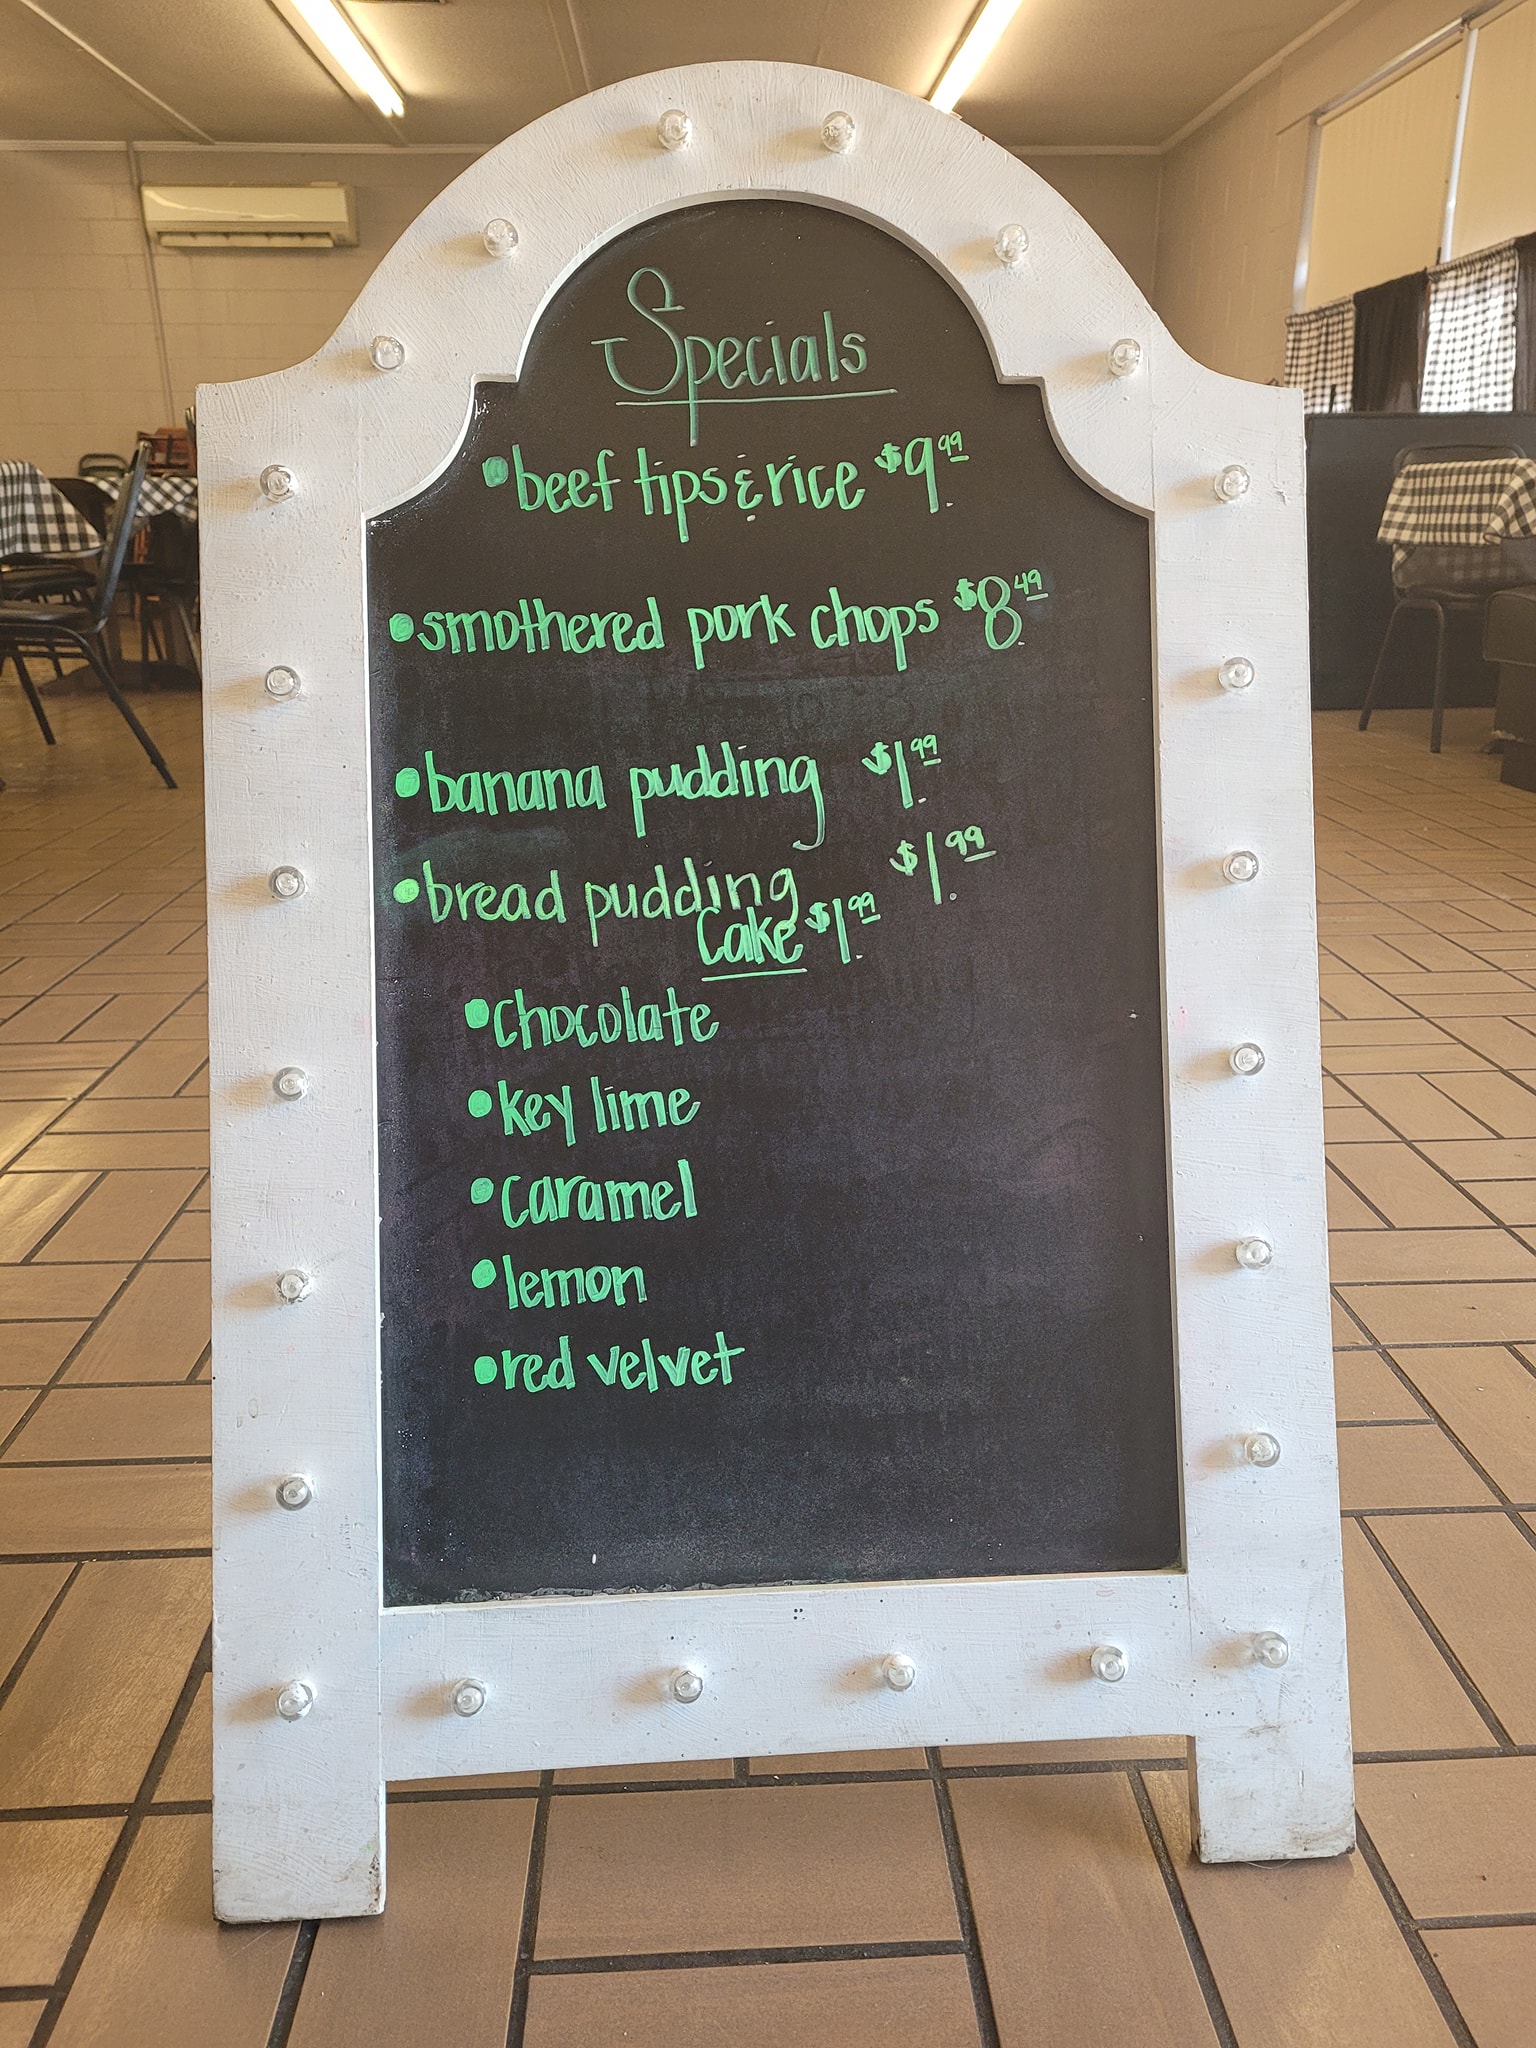 Specials
•beef tips & rice $9.99
•smothered pork chops $8.49
•banana pudding $1.99
•bread pudding $1.99
Cake $1.99
•chocolate
•key lime
•caramel
•lemon
•red velvet